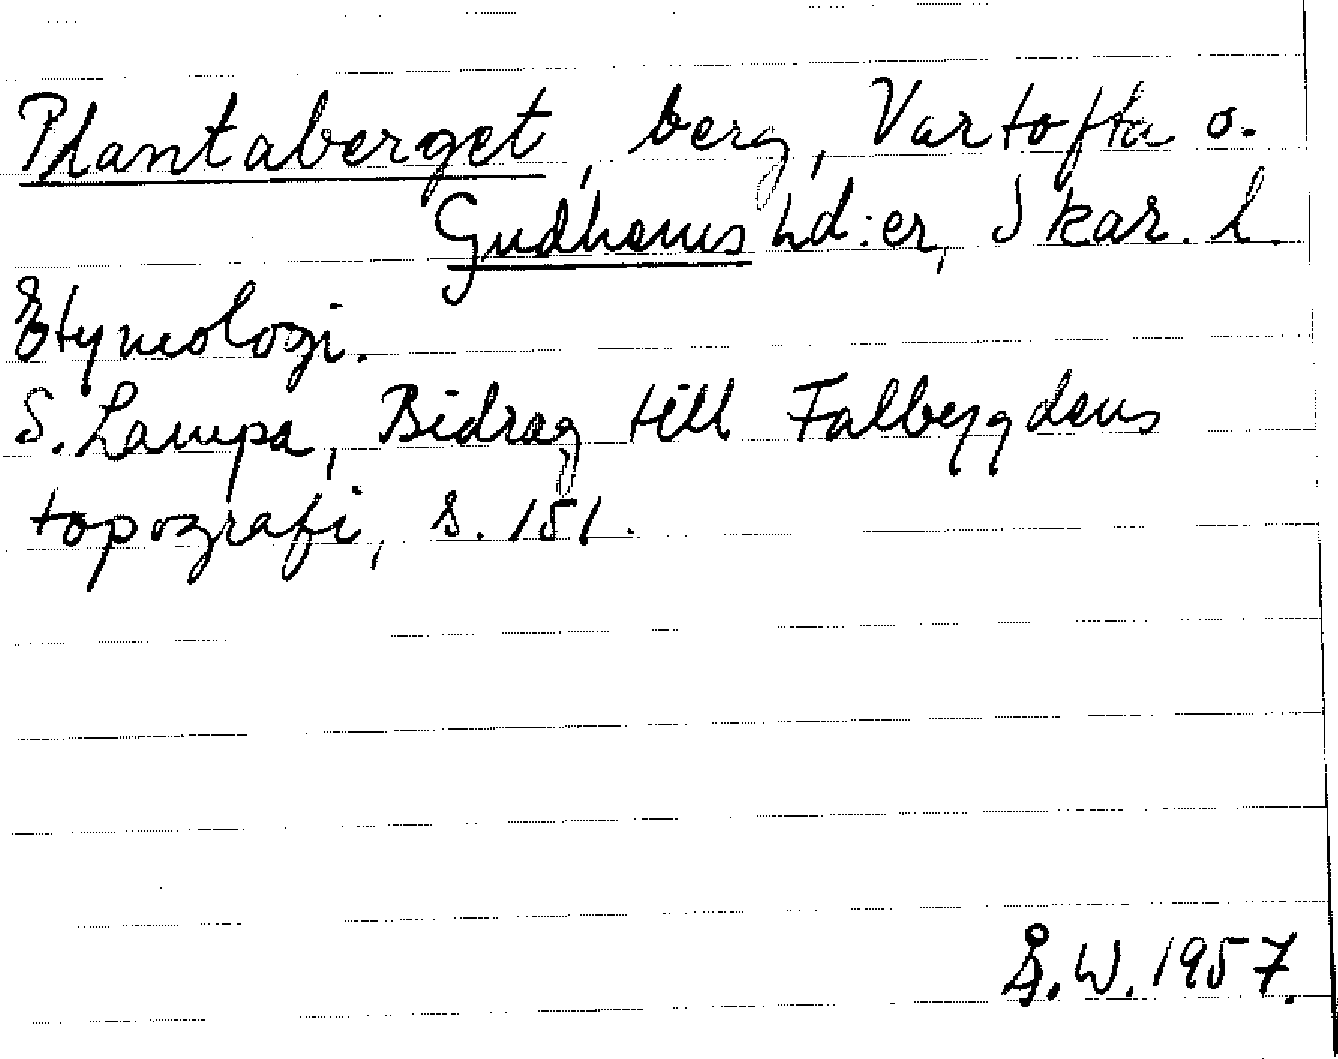 Plantaberget, berg, Vartofta o.
Gudhems hd:er, Skar. l.
Etymologi.
S. Lampa, Bidrag till Falbygdens
topografi, s. 151.
Å. W. 1957.